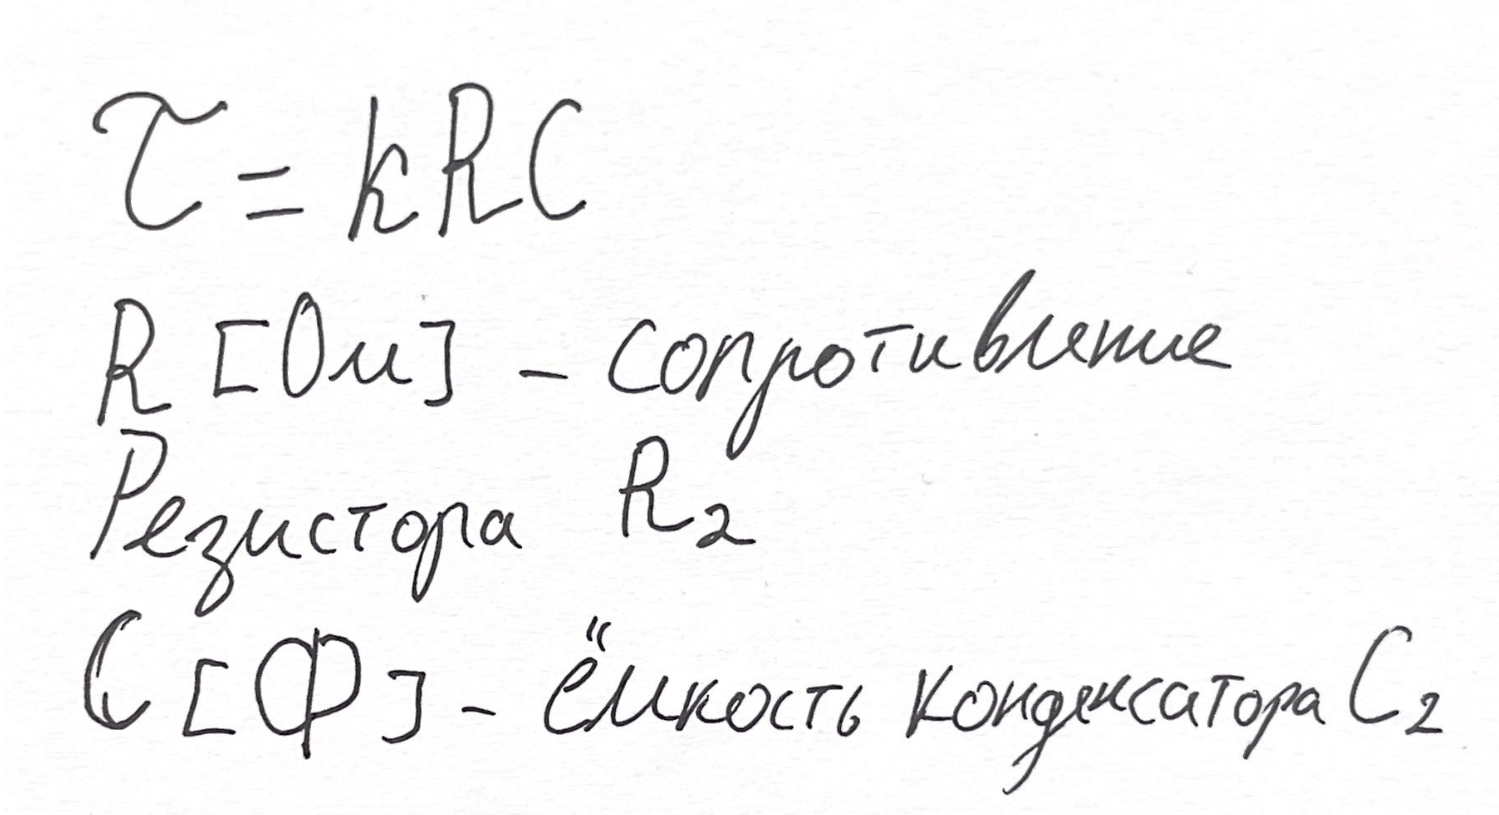 τ = kRC
R [Ом] - сопротивление
Резистора R₂
C [Ф] - ёмкость конденсатора C₂